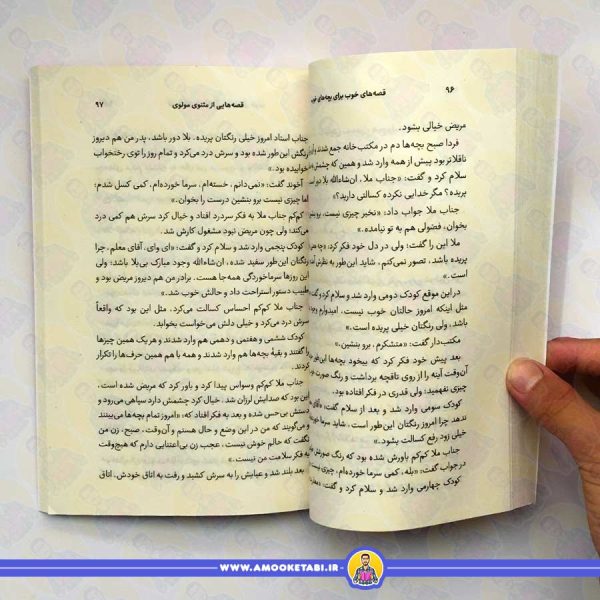 ۹۶ قصه‌های خوب برای بچه‌های
مریض خیالی بشود.
فردا صبح بچه‌ها دم در مکتب‌خانه جمع شدند و
ناقلاتر بود پیش از همه وارد شد و همین که چشمش
سلام کرد و گفت: «جناب ملا، ان‌شاءالله بلا دور است
پریده؟ مگر خدایی نکرده کسالتی دارید؟»
جناب ملا جواب داد: «نخیر چیزی نیست، برو بنشین
بخوان، فضولی هم به تو نیامده.»
ملا این را گفت؛ ولی در دل خود فکر کرد: «چه
پریده باشد، تصور نمی‌کنم، شاید این‌طور به نظرش
است.»
در این موقع کودک دومی وارد شد و سلام کرد و گفت:
مثل اینکه امروز حالتان خوب نیست، امیدوارم
باشد، ولی رنگتان خیلی پریده است.»
مکتب‌دار گفت: «متشکرم، برو بنشین.»
بعد پیش خود فکر کرد که بیخود بچه‌ها این‌طور
آن‌وقت آینه را از روی تاقچه برداشت و رنگ صورت
چیزی نفهمید، ولی قدری در فکر افتاده بود.
کودک سومی وارد شد و بعد از سلام گفت: «آقای
ندهد امروز رنگتان این‌طور است، شاید سرما
خیلی زود رفع کسالت بشود.»
جناب ملا کم‌کم باورش شده بود که رنگ صورتش
در جواب گفت: «بله، کمی سرما خورده‌ام، چیزی نیست
کودک چهارمی وارد شد و سلام کرد و گفت:
قصه‌هایی از مثنوی مولوی ۹۷
جناب استاد امروز خیلی رنگتان پریده، بلا دور باشد، پدر من هم دیروز
رنگش این‌طور شده بود و سرش درد می‌کرد و تمام روز را توی رختخواب
خوابیده بود.»
آخوند گفت: «نمی‌دانم، خسته‌ام، سرما خورده‌ام، کمی کسل شدم؛
اما چیزی نیست برو بنشین درست را بخوان.»
کم‌کم جناب ملا به فکر سردرد افتاد و خیال کرد سرش هم کمی درد
می‌کند؛ ولی چون مریض نبود مشغول کارش شد.
کودک پنجمی وارد شد و سلام کرد و گفت: «ای وای، آقای معلم، چرا
رنگتان این‌طور سفید شده، ان‌شاءالله وجود مبارک بی‌بلا باشد؛ ولی
این روزها سرماخوردگی همه‌جا هست. برادر من هم دیروز مریض بود و
طبیب دستور استراحت داد و حالش خوب شد.»
جناب ملا کم‌کم احساس کسالت می‌کرد، مثل این بود که واقعاً
سرش درد می‌کرد و خیلی دلش می‌خواست بخوابد.
کودک ششمی و هفتمی و دهمی هم وارد شدند و هر یک همین چیزها
را گفتند و بقیهٔ بچه‌ها هم وارد شدند و همه با هم همین حرف‌ها را تکرار
کردند.
جناب ملا کم‌کم وسواس پیدا کرد و باور کرد که مریض شده است،
این بود که صدایش لرزان شد. خیال کرد چشمش دارد سیاهی می‌رود و
دستش بی‌حس شده و بعد به فکر افتاد که: «امروز تمام بچه‌ها می‌بینند
و می‌گویند که من در این وضع و حال هستم و آن‌وقت، صبح، زن من
نگفت که حالم خوش نیست، عجب زن بی‌اعتنایی دارم که هیچ‌وقت
به فکر سلامت من نیست.»
بعد بلند شد و عبایش را به سرش کشید و رفت به اتاق خودش. اتاق
WWW.AMOOKETABI.IR